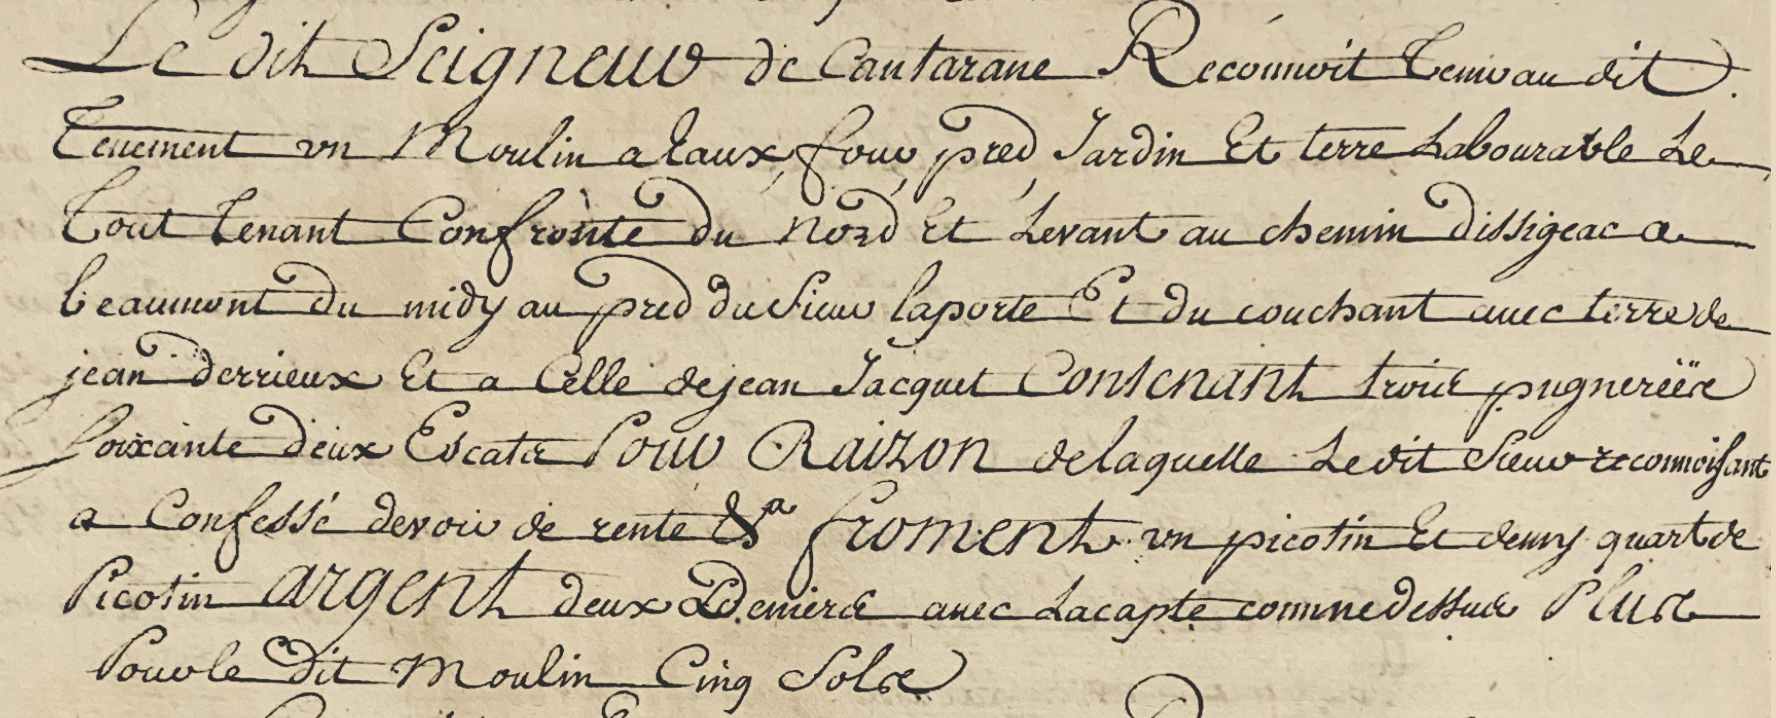 Le dit Seigneur de Cantarane Reconnoit Tenir au dit
Tenement un Moulin a Eaux, four, pred, Jardin Et terre Labourable Le
Tout Tenant Confronte du Nord Et Levant au chemin dissigeac a
beaumont du midy au pred du Sieur laporte Et du couchant avec terre de
jean derrieux Et a Celle de jean Jacquet Contenant trois pugnerëës
soixante deux Escats Pour Raizon de laquelle Le dit Sieur reconnoissant
a Confessé devoir de rente &a froment un picotin Et demy quart de
Picotin argent deux Deniers avec Lacapte comme dessus Plus
Pour le dit Moulin Cinq Sols